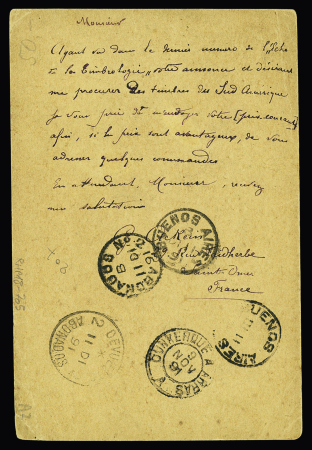 Monsieur
Ayant vu dans le dernier numero de l'Echo
de la Timbrologie, votre annonce et désirant
me procurer des timbres des Sud Amérique
Je vous prie de m'envoyer votre (prix-courant)
afin, si les prix sont avantageux, de vous
adresser quelques commandes
En attendant, Monsieur, recevez
mes salutations
Rue Faidherbe
Saint Omer
France
BUENOS AIRES
ABONADOS No. 2
11 DI
DUNKERQUE A ARRAS
9
NOV
91
BUENOS AIRES
11
ABONADOS 2
11 DI
91